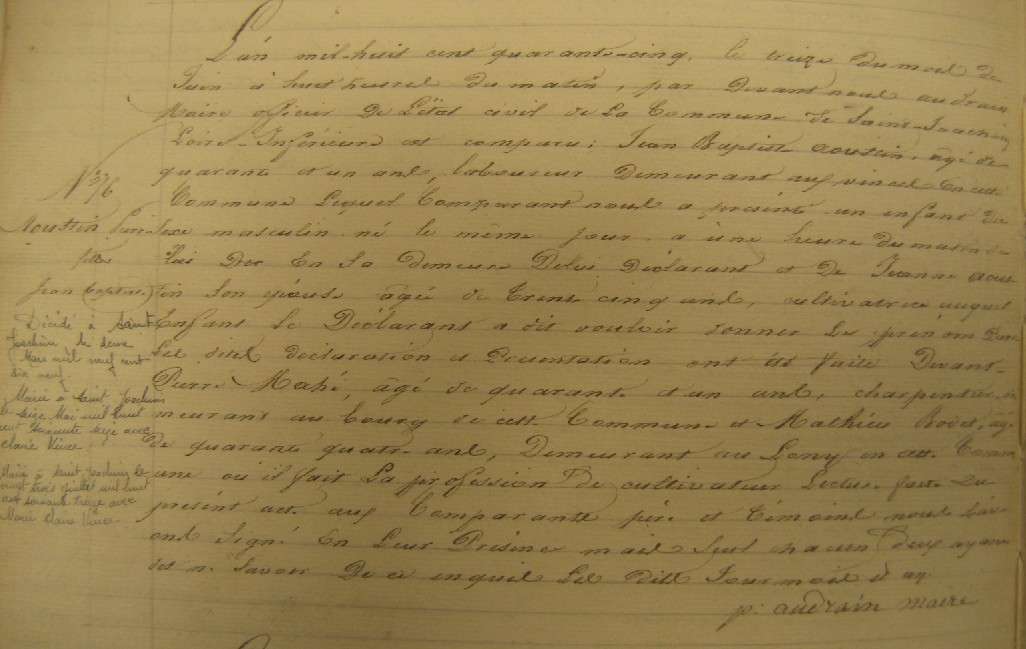 L'an mil-huit cent quarante-cinq, le treize du mois de
Juin à huit heures du matin, par Devant nous audrain
Maire officier De L'état civil de La Commune de Saint-Joachim
Loire-Inférieure est comparu; Jean Baptiste aoustin, âgé de
quarante et un ans, laboureur Demeurant aux vinces en cette
Commune Lequel Comparant nous a présenté un enfant du
sexe masculin né le même jour, à une heure du matin de
Lui Dec En Sa demeure Delui Déclarant et De Jeanne aous
tin Son épouse âgée de Trente cinq ans, cultivatrice auquel
Enfant Le Déclarant a dit vouloir donner Le prénom
Les dites déclaration et présentation ont été faite Devant
Pierre Mahé, âgé de quarante et un ans, charpentier,
meurant au bourg de cette Commune et Mathieu âgé
de quarante quatre ans, Demeurant au en cette Comm
une où il fait La profession De cultivateur Lecture faite du
présent acte aux Comparants père et Témoins nous
ons Signé En Leur Présence mais Seul chacun Deux ayant
dit ne Savoir De ce enquis Les Dits Jour mois et an
p: audrain maire
N° 76
Aoustin
fils de
Jean Baptiste
Décédé à Saint
Joachim le deux
Mars mil neuf cent
dix neuf
Marié à Saint Joachim
le seize Mai mil huit
cent seize avec
Marié à Saint Joachim le
vingt trois juillet mil huit
cent soixante treize avec
Marie